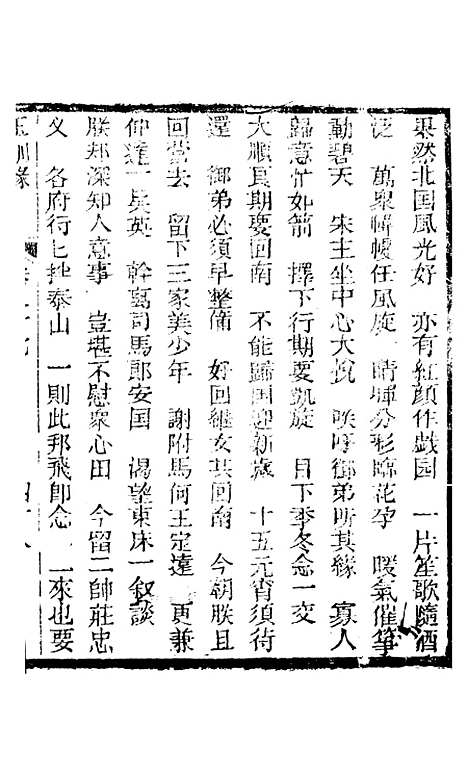 果然北国風光好　亦有紅顏作戯园　一片笙歌隨酒
泛　萬衆幃幔任風旋　晴輝分彩臨花孕　暖氣催筝
動碧天　朱主坐中心大悅　唉呼御弟听其緣　寡人
歸意忙如箭　擇下行期要凱旋　目下季冬念一交
大順良期要回南　不能歸国迎新歲　十五元宵須待
還　御弟必須早整備　好回継女共回南　今朝朕且
回當去　留下三家美少年　謝附馬何王定遠　更兼
仰達一英　幹离司馬郎安国　渴望東床一叙談
朕邦深知人意事　豈堪不慰衆心田　今留二帥莊忠
义　各府行七拜泰山　一則此邦飛即念　一來也要
玉釧緣